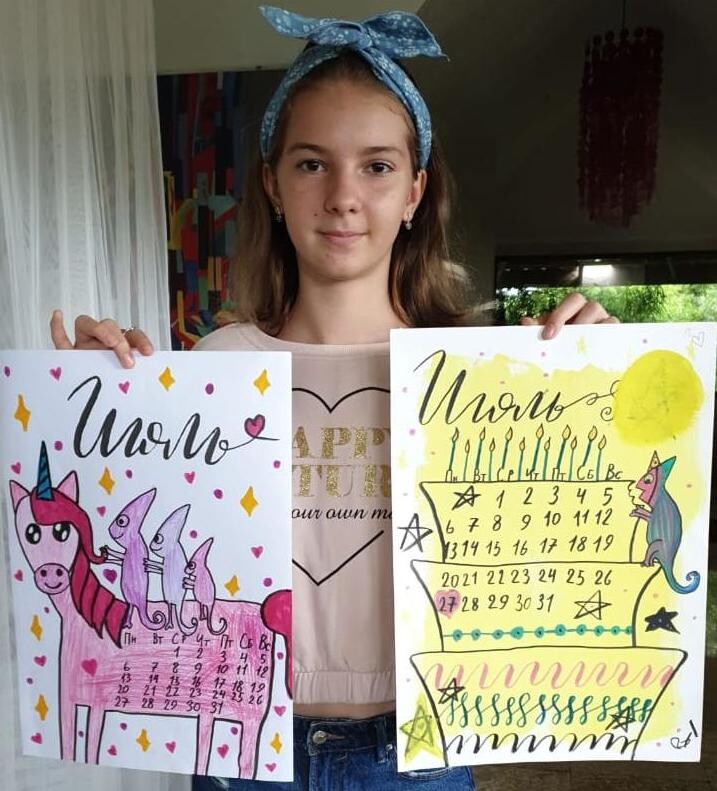 Июль
Пн Вт Ср Чт Пт Сб Вс
1 2 3 4 5
6 7 8 9 10 11 12
13 14 15 16 17 18 19
20 21 22 23 24 25 26
27 28 29 30 31
APPY
TUR
our own m
Июль
Пн Вт Ср Чт Пт Сб Вс
1 2 3 4 5
6 7 8 9 10 11 12
13 14 15 16 17 18 19
20 21 22 23 24 25 26
27 28 29 30 31